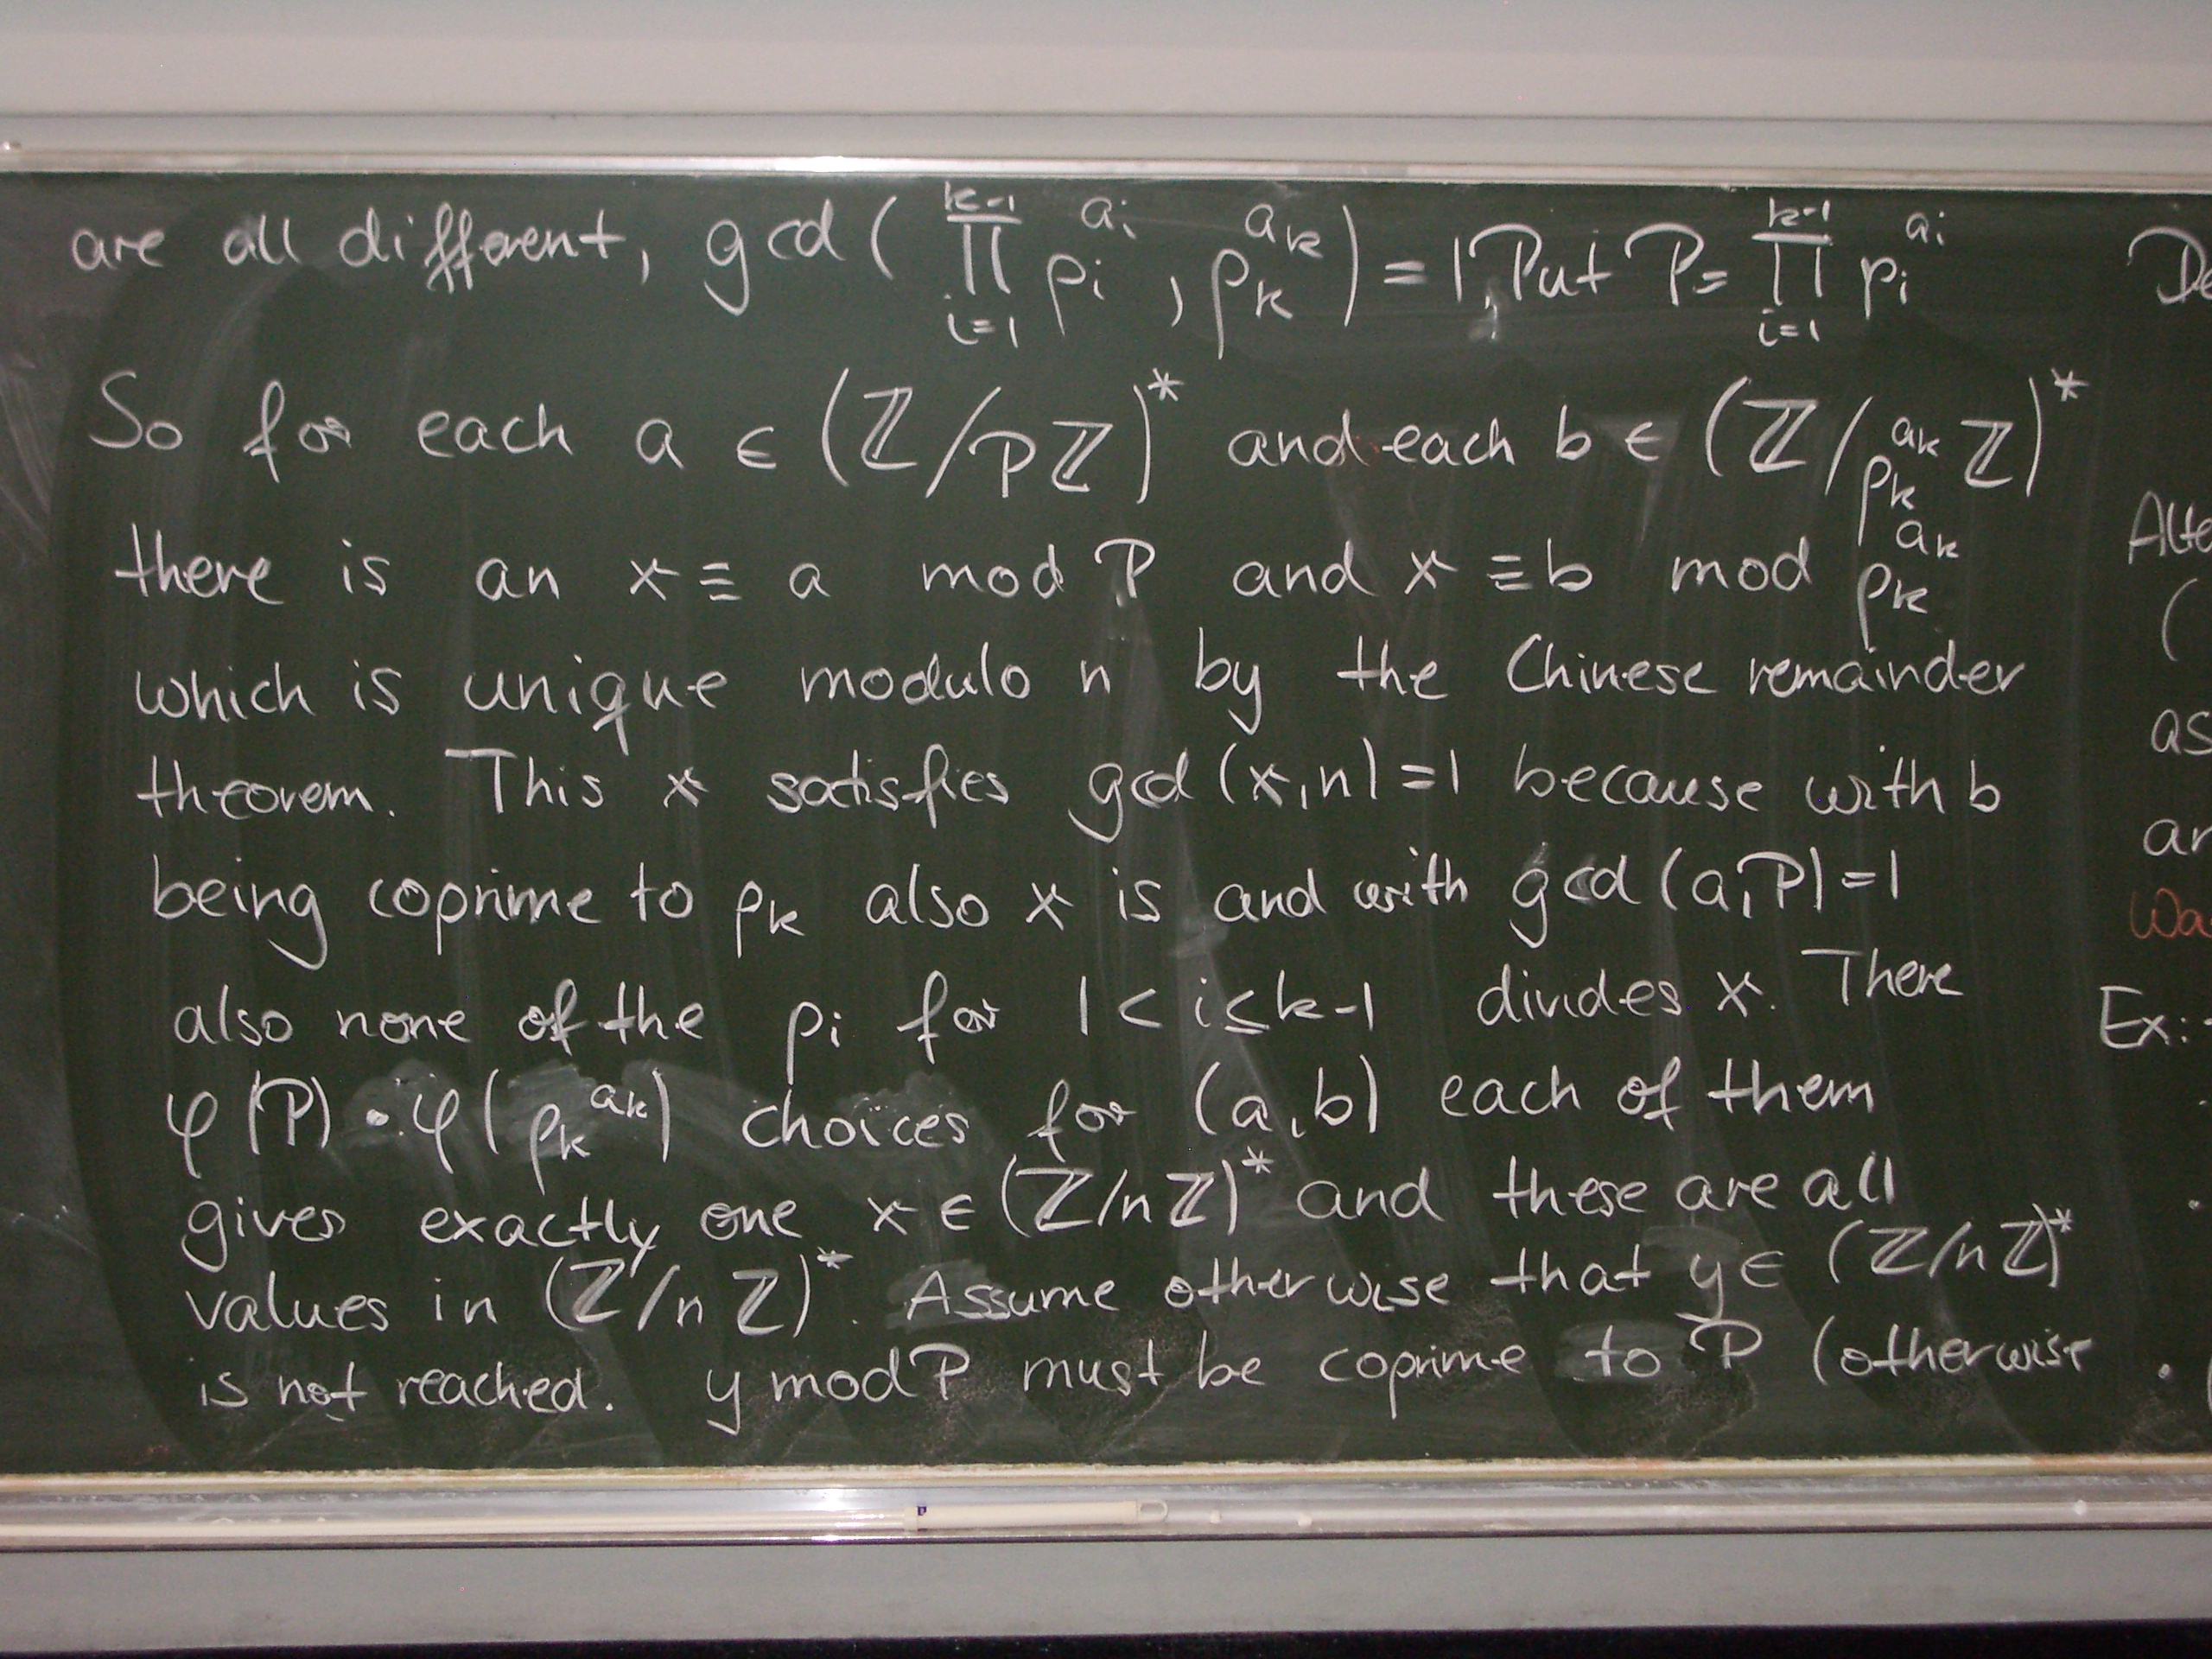 are all different, gcd( ∏_{i=1}^{k-1} p_i^{a_i} , p_k^{a_k} ) = 1, Put P = ∏_{i=1}^{k-1} p_i^{a_i}
So for each a ∈ (ℤ/Pℤ)* and each b ∈ (ℤ/p_k^{a_k} ℤ)*
there is an x ≡ a mod P and x ≡ b mod p_k^{a_k}
which is unique modulo n by the Chinese remainder
theorem. This x satisfies gcd(x,n)=1 because with b
being coprime to p_k also x is and with gcd(a,P)=1
also none of the p_i for 1 < i ≤ k-1 divides x. There
φ(P) · φ(p_k^{a_k}) choices for (a,b) each of them
gives exactly one x ∈ (ℤ/nℤ)* and these are all
values in (ℤ/nℤ)*. Assume otherwise that y ∈ (ℤ/nℤ)*
is not reached. y mod P must be coprime to P (otherwise
De
Alte
(
as
ar
Wa
Ex: